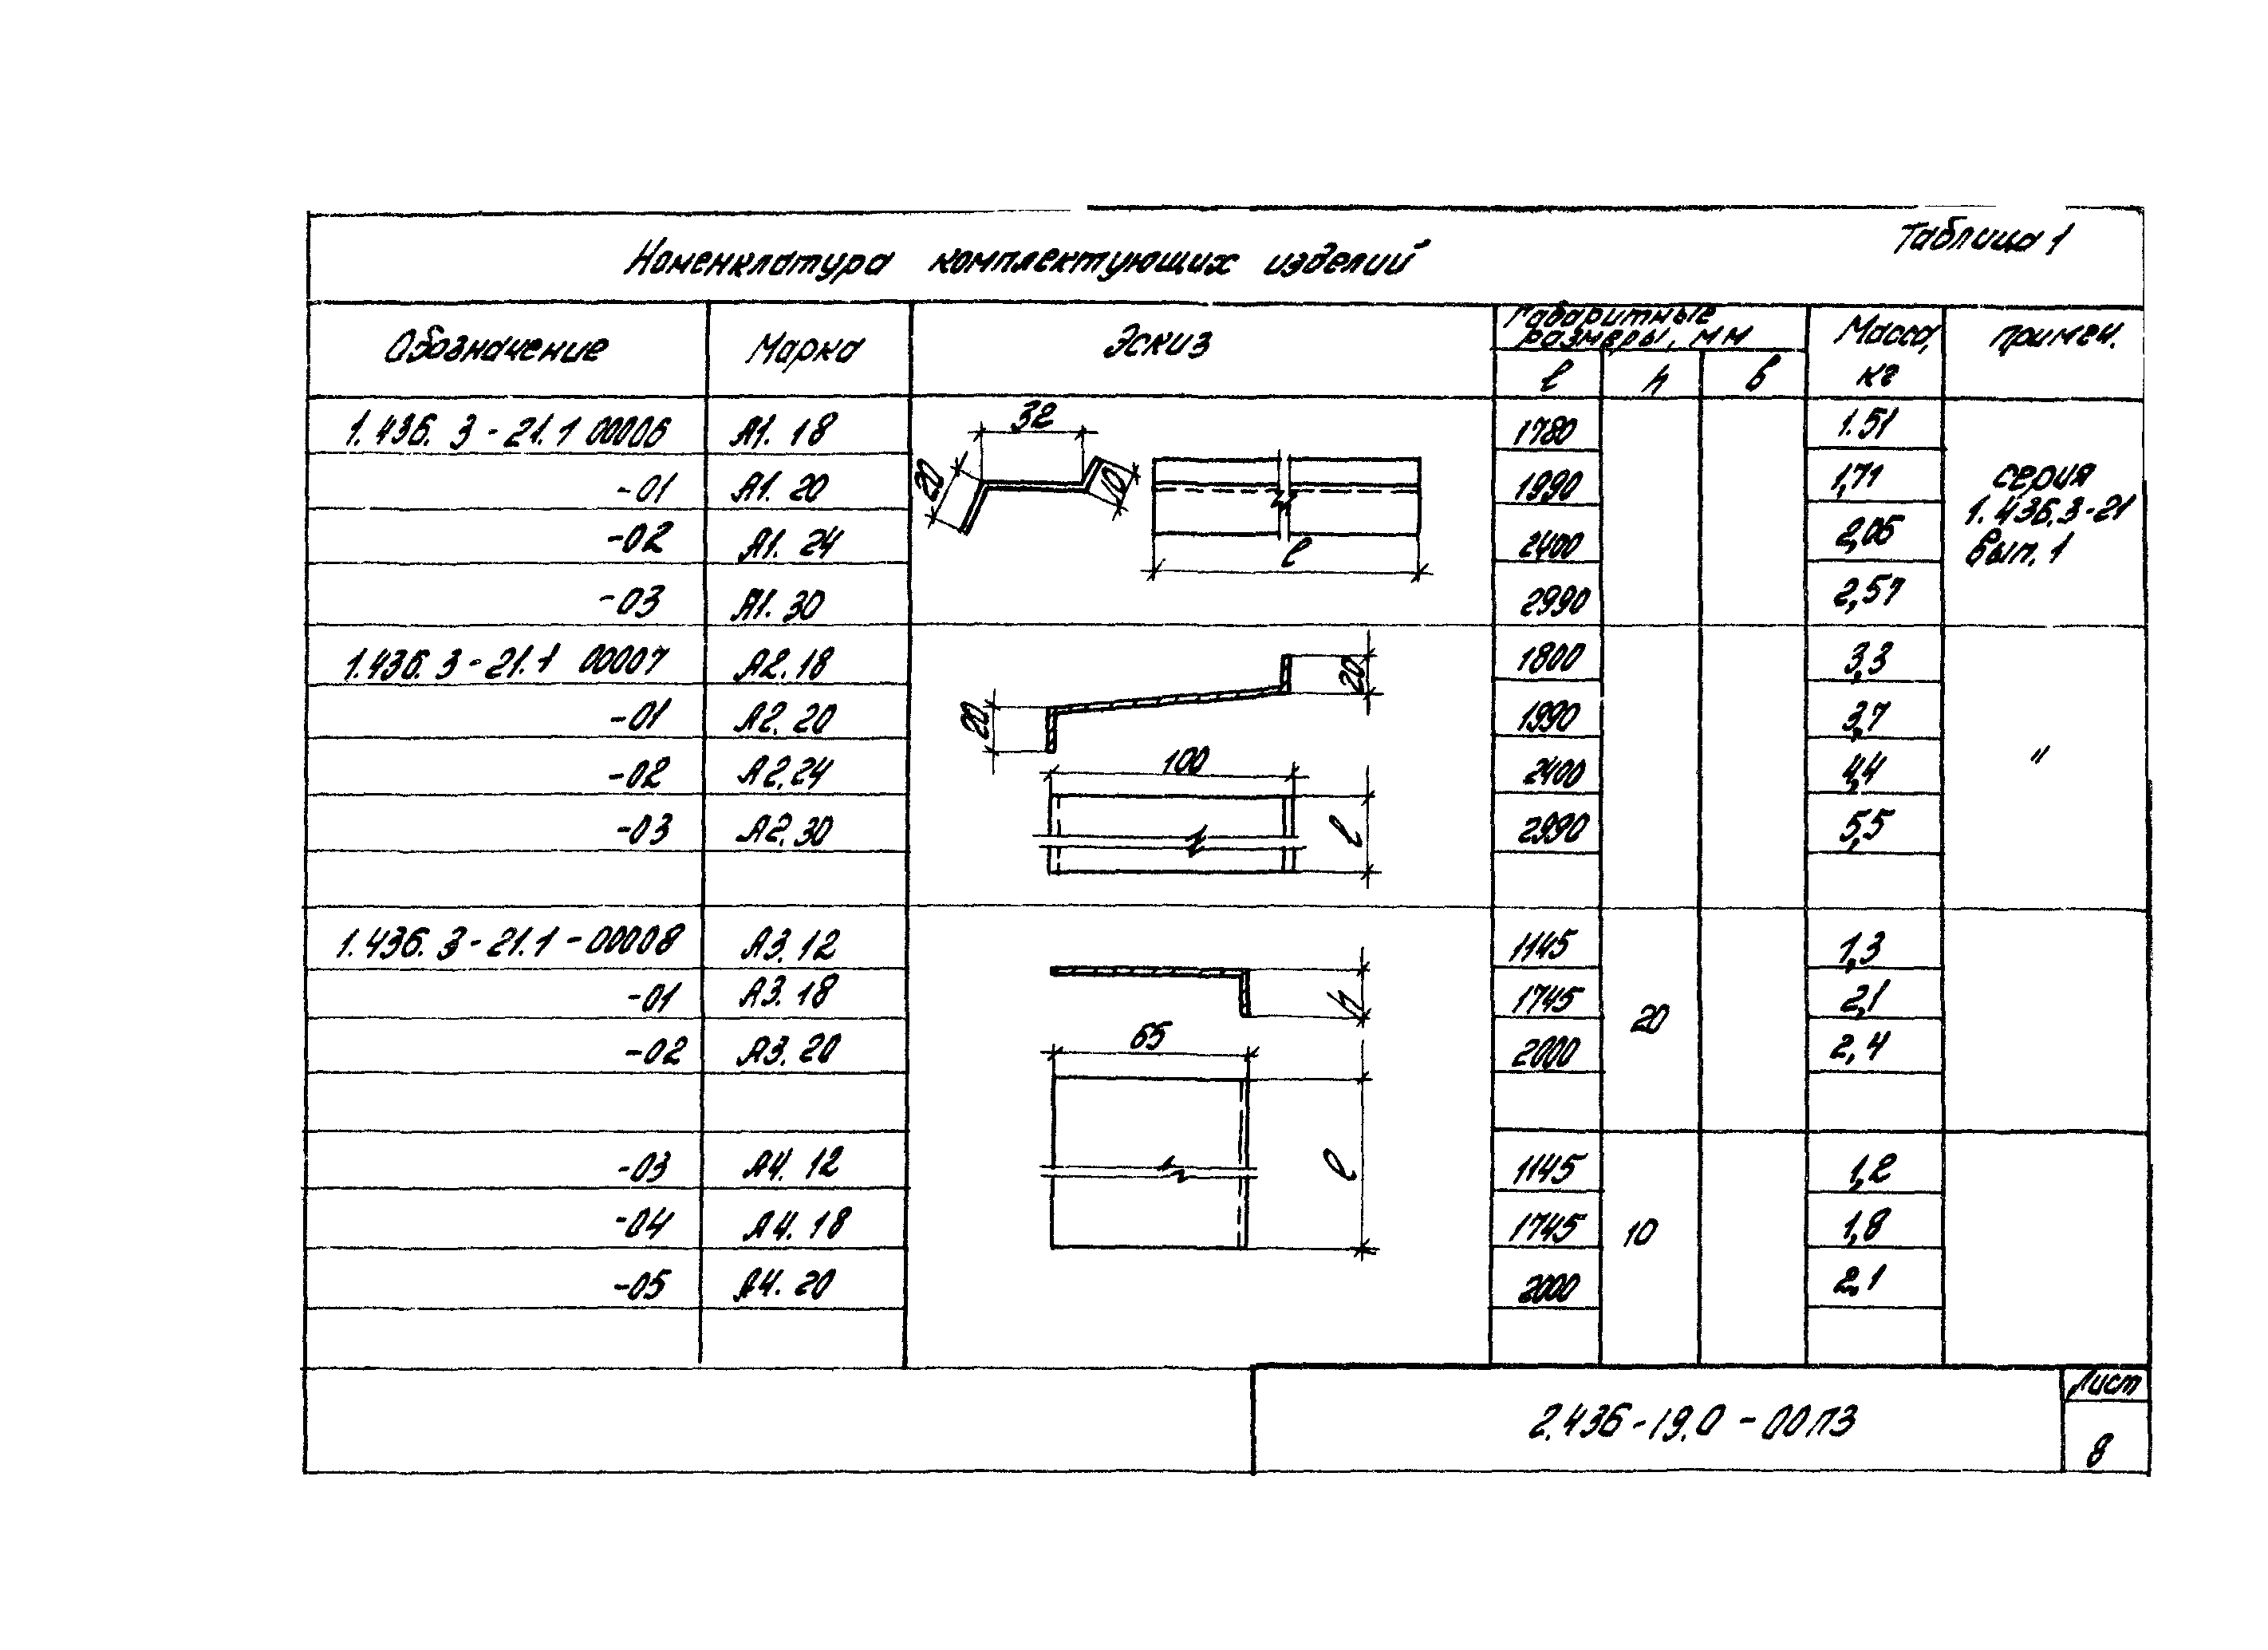 Таблица 1
Номенклатура комплектующих изделий
Обозначение Марка Эскиз Габаритные размеры, мм Масса, кг примеч.
l h b
1.436.3-21.1 00006 А1.18 1780 1.51
-01 А1.20 1990 1,71
-02 А1.24 2400 2,06
-03 А1.30 2990 2,57
серия
1.436.3-21
вып.1
32
20
10
l
1.436.3-21.1 00007 А2.18 1800 3,3
-01 А2.20 1990 3,7
-02 А2.24 2400 4,4
-03 А2.30 2990 5,5
"
20
20
100
l
1.436.3-21.1-00008 А3.12 1145 1,3
-01 А3.18 1745 20 2,1
-02 А3.20 2000 2,4
-03 А4.12 1145 1,2
-04 А4.18 1745 10 1,8
-05 А4.20 2000 2,1
h
65
l
2.436-19.0-00ПЗ
Лист
8